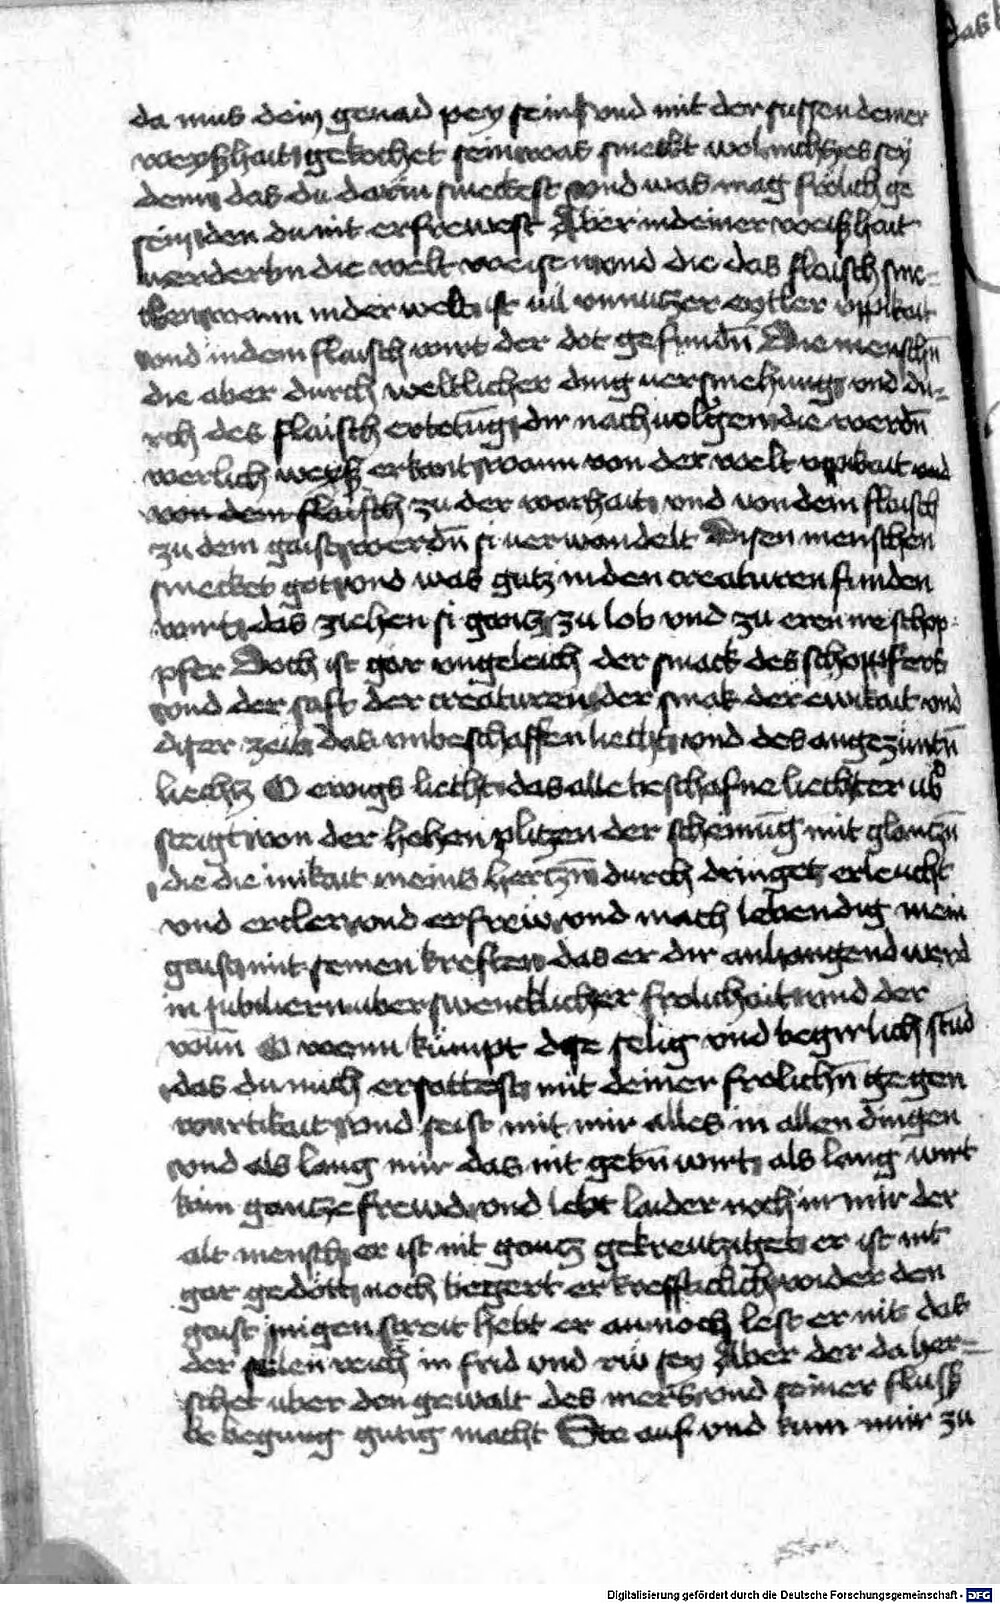 da mus dein genad pey sein vnd mit der sussen deiner
weyshait gekochet sein was smeckt wol nichs es sey
denn das du darin smeckest vnd was mag frölich ge
sein den du nit erfrewest Aber in deiner weishait
verderbn die welt weisen vnd die das flaisch sme-
cken wann in der welt ist uil vnnutzer eytler vppikait
vnd in dem flaisch wirt der dot gefundn̄ Die menschn̄
die aber durch weltlicher ding uersmehung vnd du-
rch des flaisch ertotūg dir nachuolgen die werdn̄
werlich weys erkant wann von der welt vppikait vnd
von dem flaisch zu der warhait vnd von dem flaisch
zu dem gaist werdn̄ si uerwandelt Disen menschen
smecket got vnd was gutz in den creaturen funden
wirt das ziehen si gantz zu lob vnd zu eren ire schop-
pfer Doch ist gar vngeleich der smack des schoppfers
vnd der saft der creaturen der smak der ewikait vnd
diser zeit das vnbeschaffen liecht vnd des angezuntn̄
liechtz O ewigs liecht das alle beschafne liechter ub
steigt von der hohen plitzen der scheinūg mit glantzn̄
die die inikait meins hertzn̄ durch dringet erleucht
vnd ercler vnd erfrew vnd mach lebendig mein
gaist mit seinen kreften das er dir anhangend werd
in jubiliern uberswencklicher frolichait vnd der
wūn O wenn kumpt dise selig vnd begirlich stūd
das du mich ersattest mit deiner frolichn̄ gegen
wurtikait vnd seist mir mir alles in allen dingen
vnd als lang mir das nit gebn̄ wirt als lang wirt
kain gantze frewd vnd lebt laider noch in mir der
alt mensch er ist nit gantz gekreutziget er ist nit
gar gedött noch begert er kreffticlich wider den
gaist inigen streit hebt er an noch lest er nit das
der selen reich in frid vnd rw sey Aber der da her-
schet uber den gewalt des mers vnd seiner fluss
be begung gutig macht Ste auf vnd kum mir zu